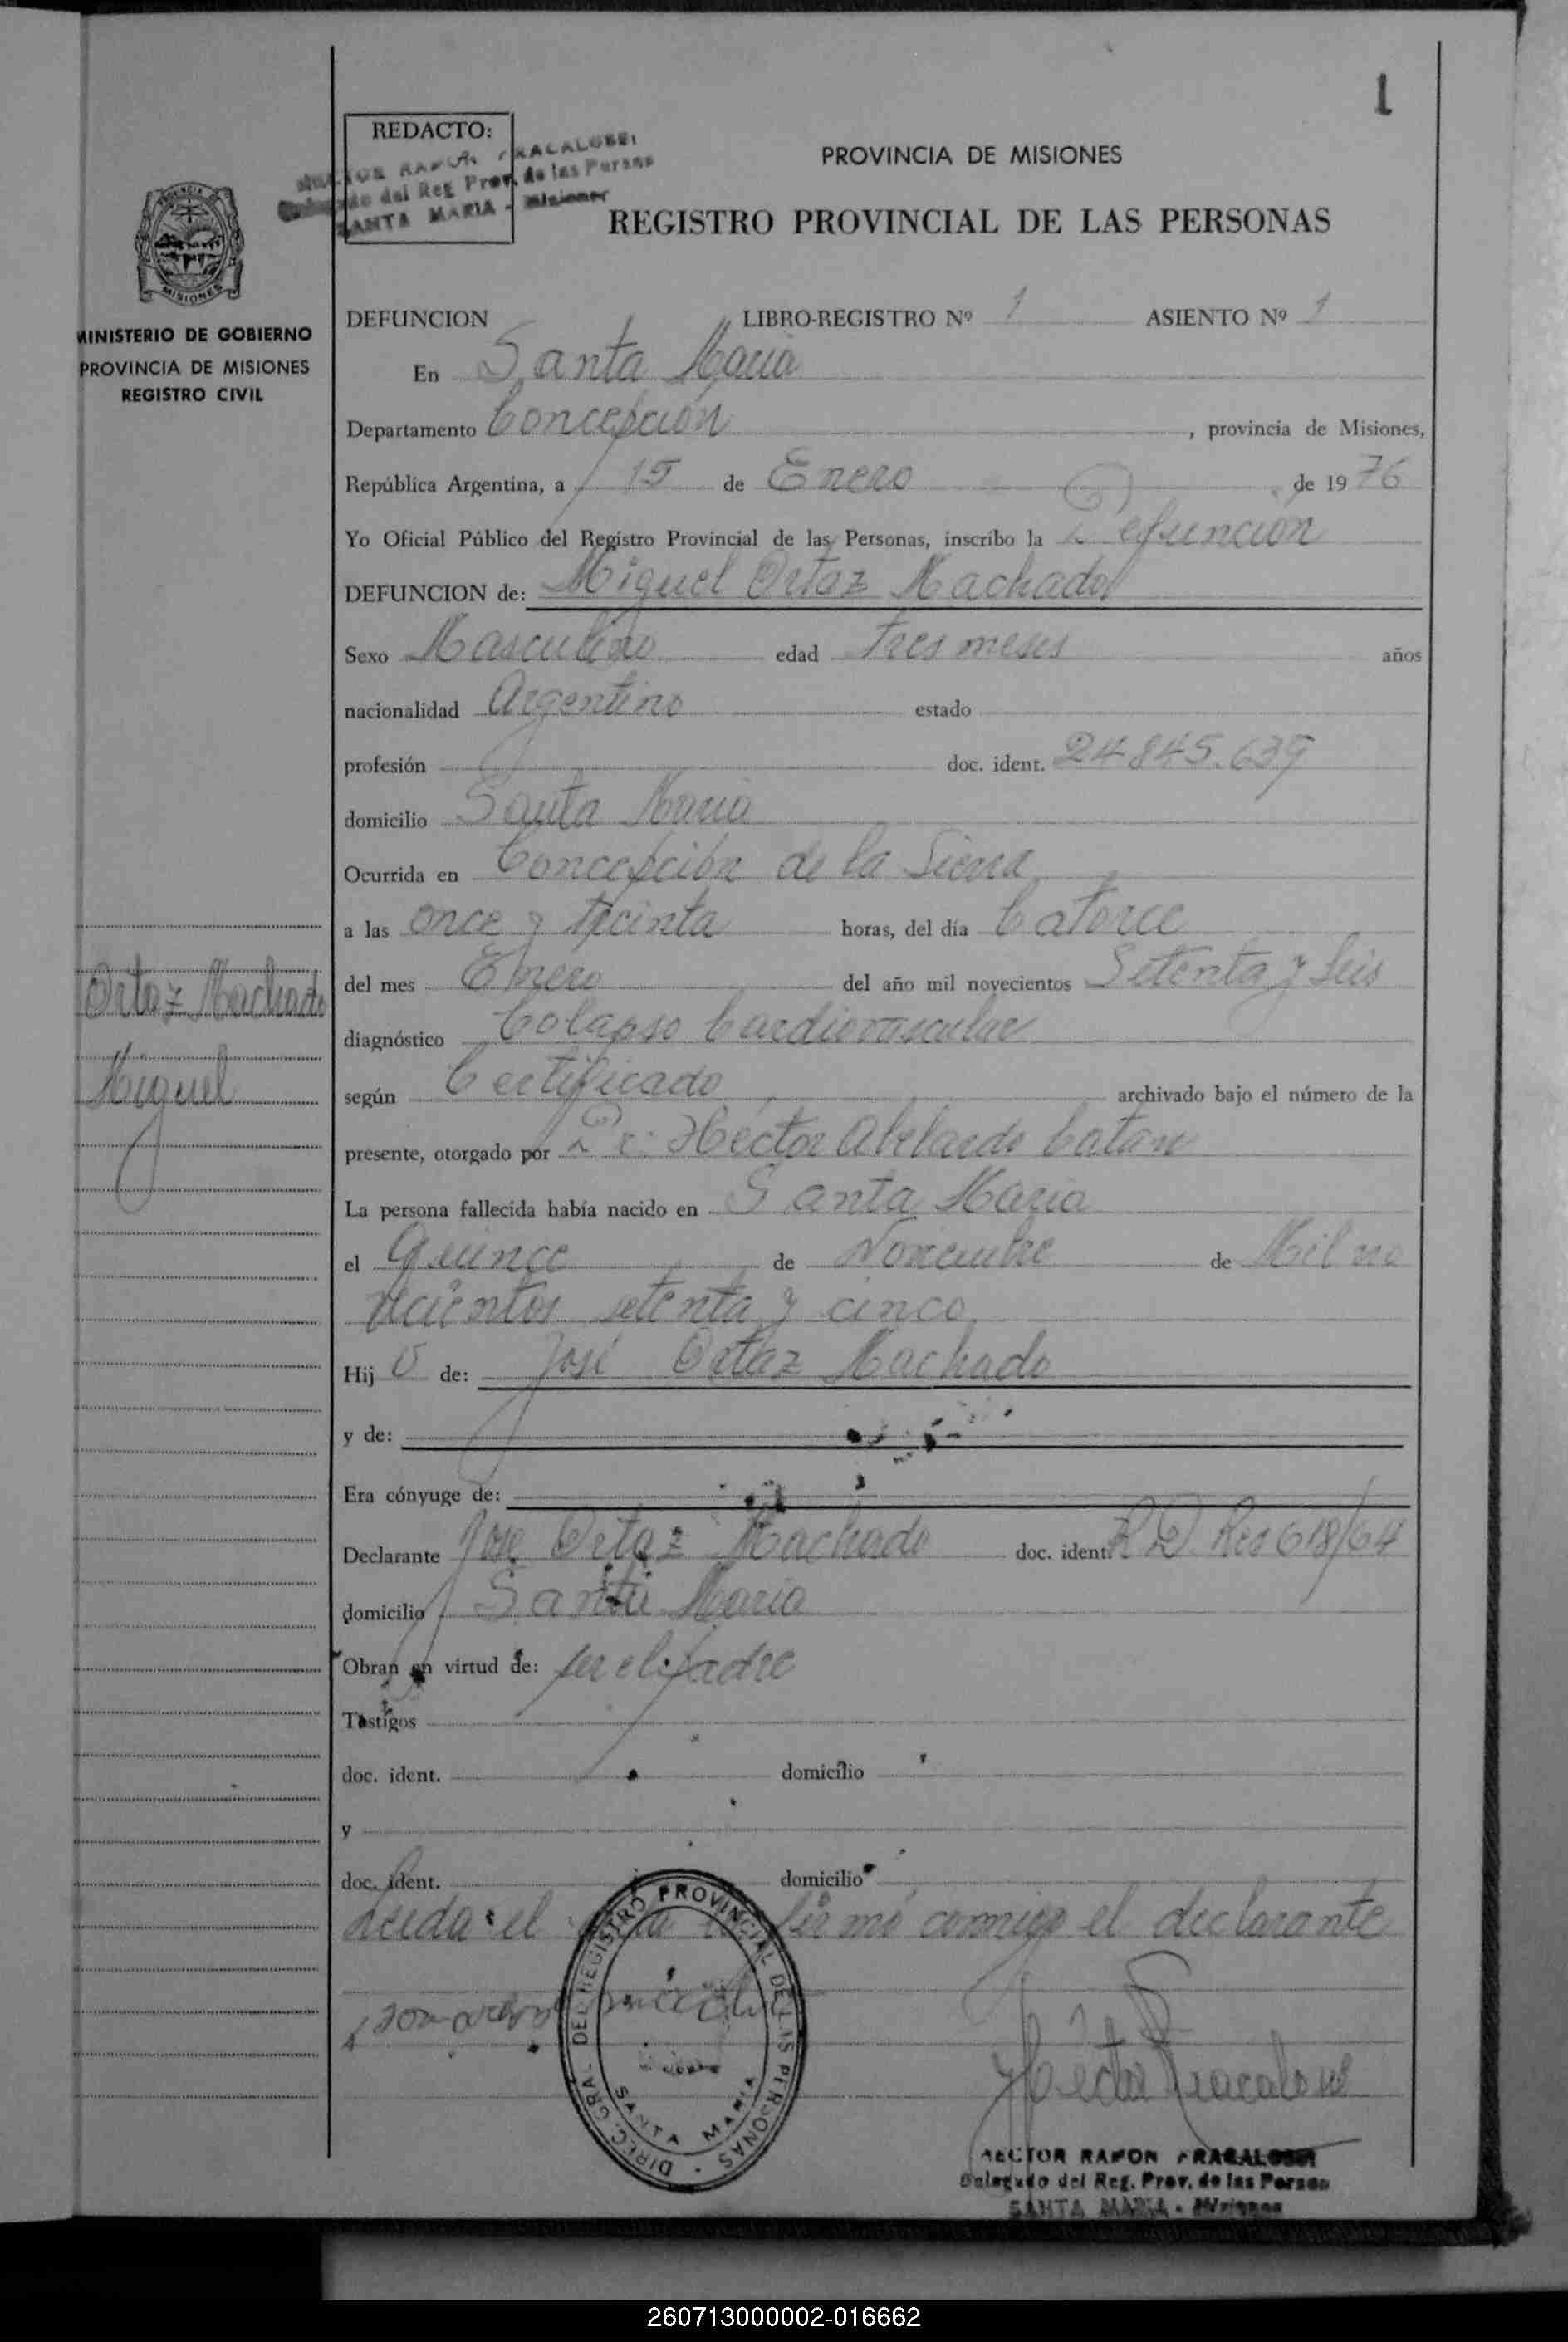 1
REDACTO:
HECTOR RAMON FRACALOSSI
Delegado del Reg. Prov. de las Person
SANTA MARIA - Misiones
PROVINCIA DE MISIONES
REGISTRO PROVINCIAL DE LAS PERSONAS
MISIONES
MINISTERIO DE GOBIERNO
PROVINCIA DE MISIONES
REGISTRO CIVIL
DEFUNCION LIBRO-REGISTRO Nº 1 ASIENTO Nº 1
En Santa Maria
Departamento Concepción, provincia de Misiones,
República Argentina, a 15 de Enero de 1976
Yo Oficial Público del Registro Provincial de las Personas, inscribo la Defunción
DEFUNCION de: Miguel Ortaz Machado
Sexo Masculino edad Tres meses años
nacionalidad Argentino estado
profesión doc. ident. 24.845.639
domicilio Santa Maria
Ocurrida en Concepción de la Sierra
a las once y treinta horas, del día Catorce
del mes Enero del año mil novecientos Setenta y Seis
diagnóstico Colapso Cardiovascular
según Certificado archivado bajo el número de la
presente, otorgado por Dr. Héctor Abelardo Catan
La persona fallecida había nacido en Santa Maria
el Quince de Noviembre de Mil no
vecientos setenta y cinco
Hij o de: José Ortaz Machado
y de:
Era cónyuge de:
Declarante José Ortaz Machado doc. ident. R.D. Res 618/64
domicilio Santa Maria
Obran en virtud de: ser el padre
Testigos
doc. ident. domicilio
y
doc. ident. domicilio
Leida el firmó conmigo el declarante
Ortaz Machado
Miguel
DIREC. GRAL. DEL REGISTRO PROVINCIAL DE LAS PERSONAS
SANTA MARIA
Hector Fracalossi
HECTOR RAMON FRACALOSSI
Delegado del Reg. Prov. de las Person
SANTA MARIA - Misiones
260713000002-016662